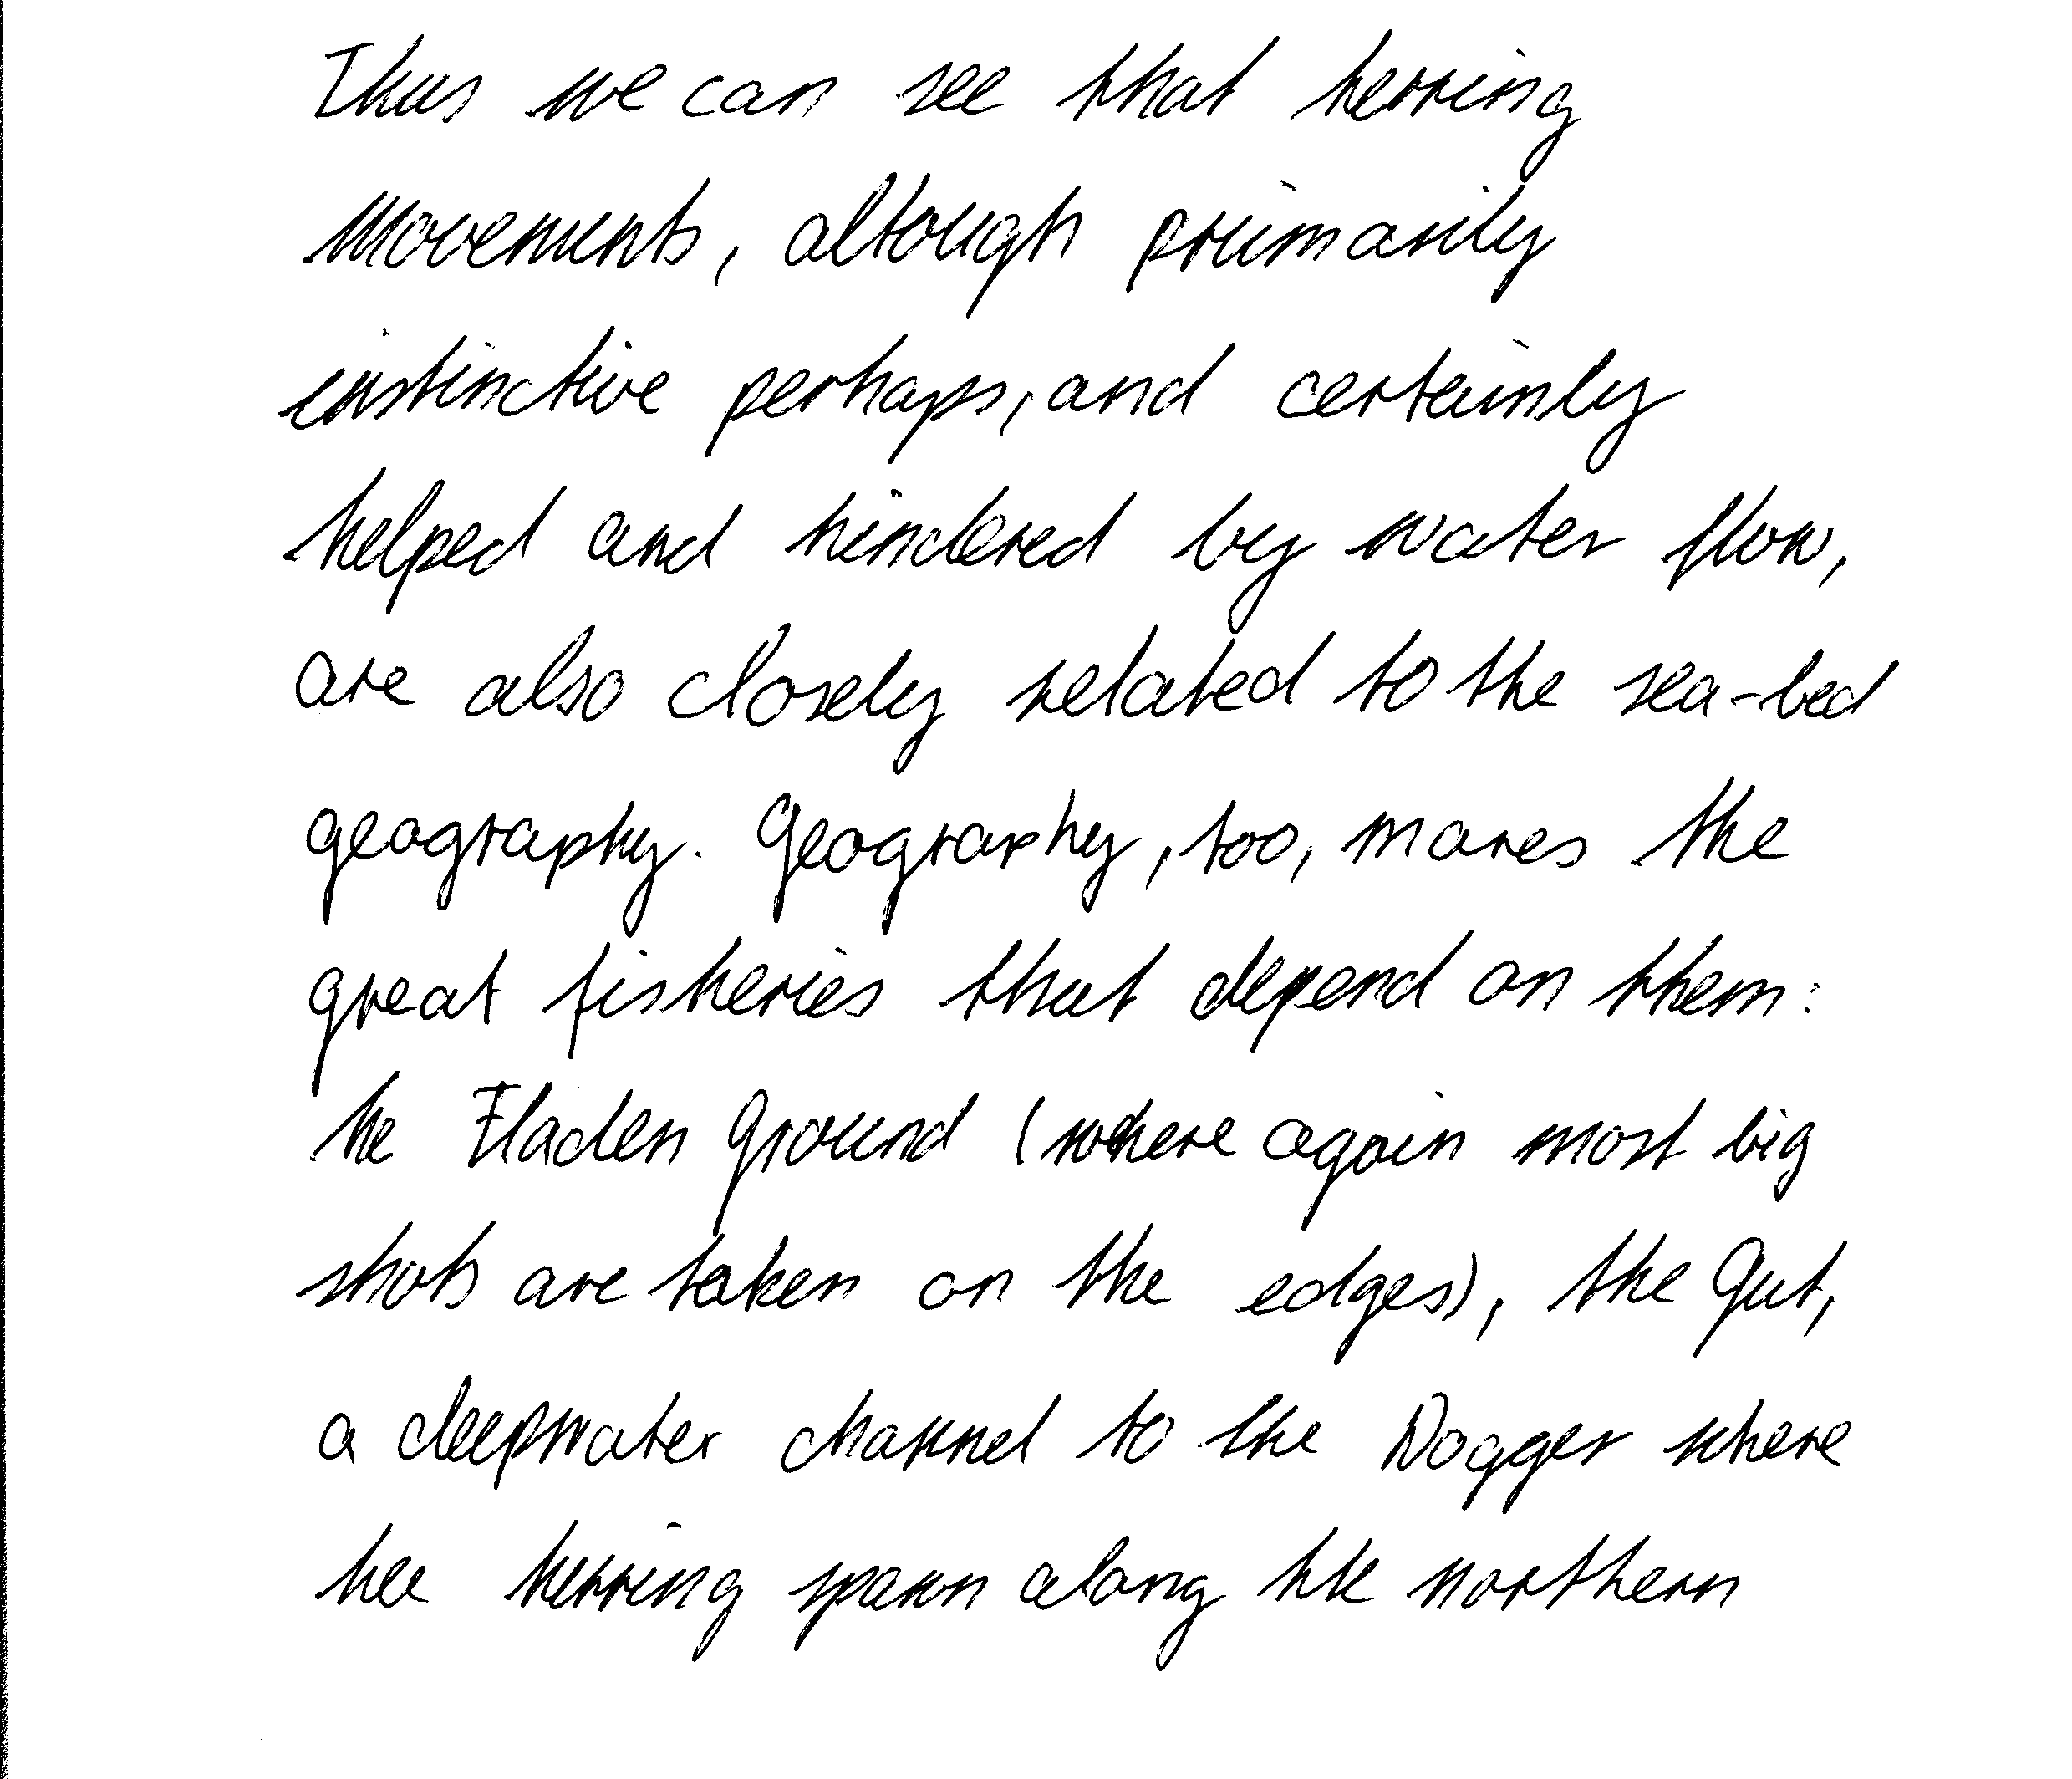 Thus we can see that herring
movements, altough primarily
instinctive perhaps, and certainly
helped and hindered by water flow,
are also closely related to the sea-bed
geography. Geography, too, makes the
great fisheries that depend on them:
the Fladen Ground (where again most big
shots are taken on the edges), the Gut,
a deepwater channel to the Dogger where
the herring spawn along the northern